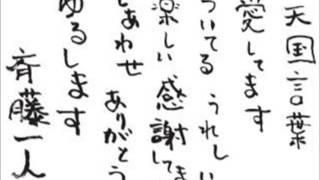 天国言葉
愛してます
ついてる うれしい
楽しい 感謝してま
しあわせ ありがとう
ゆるします
斉藤一人